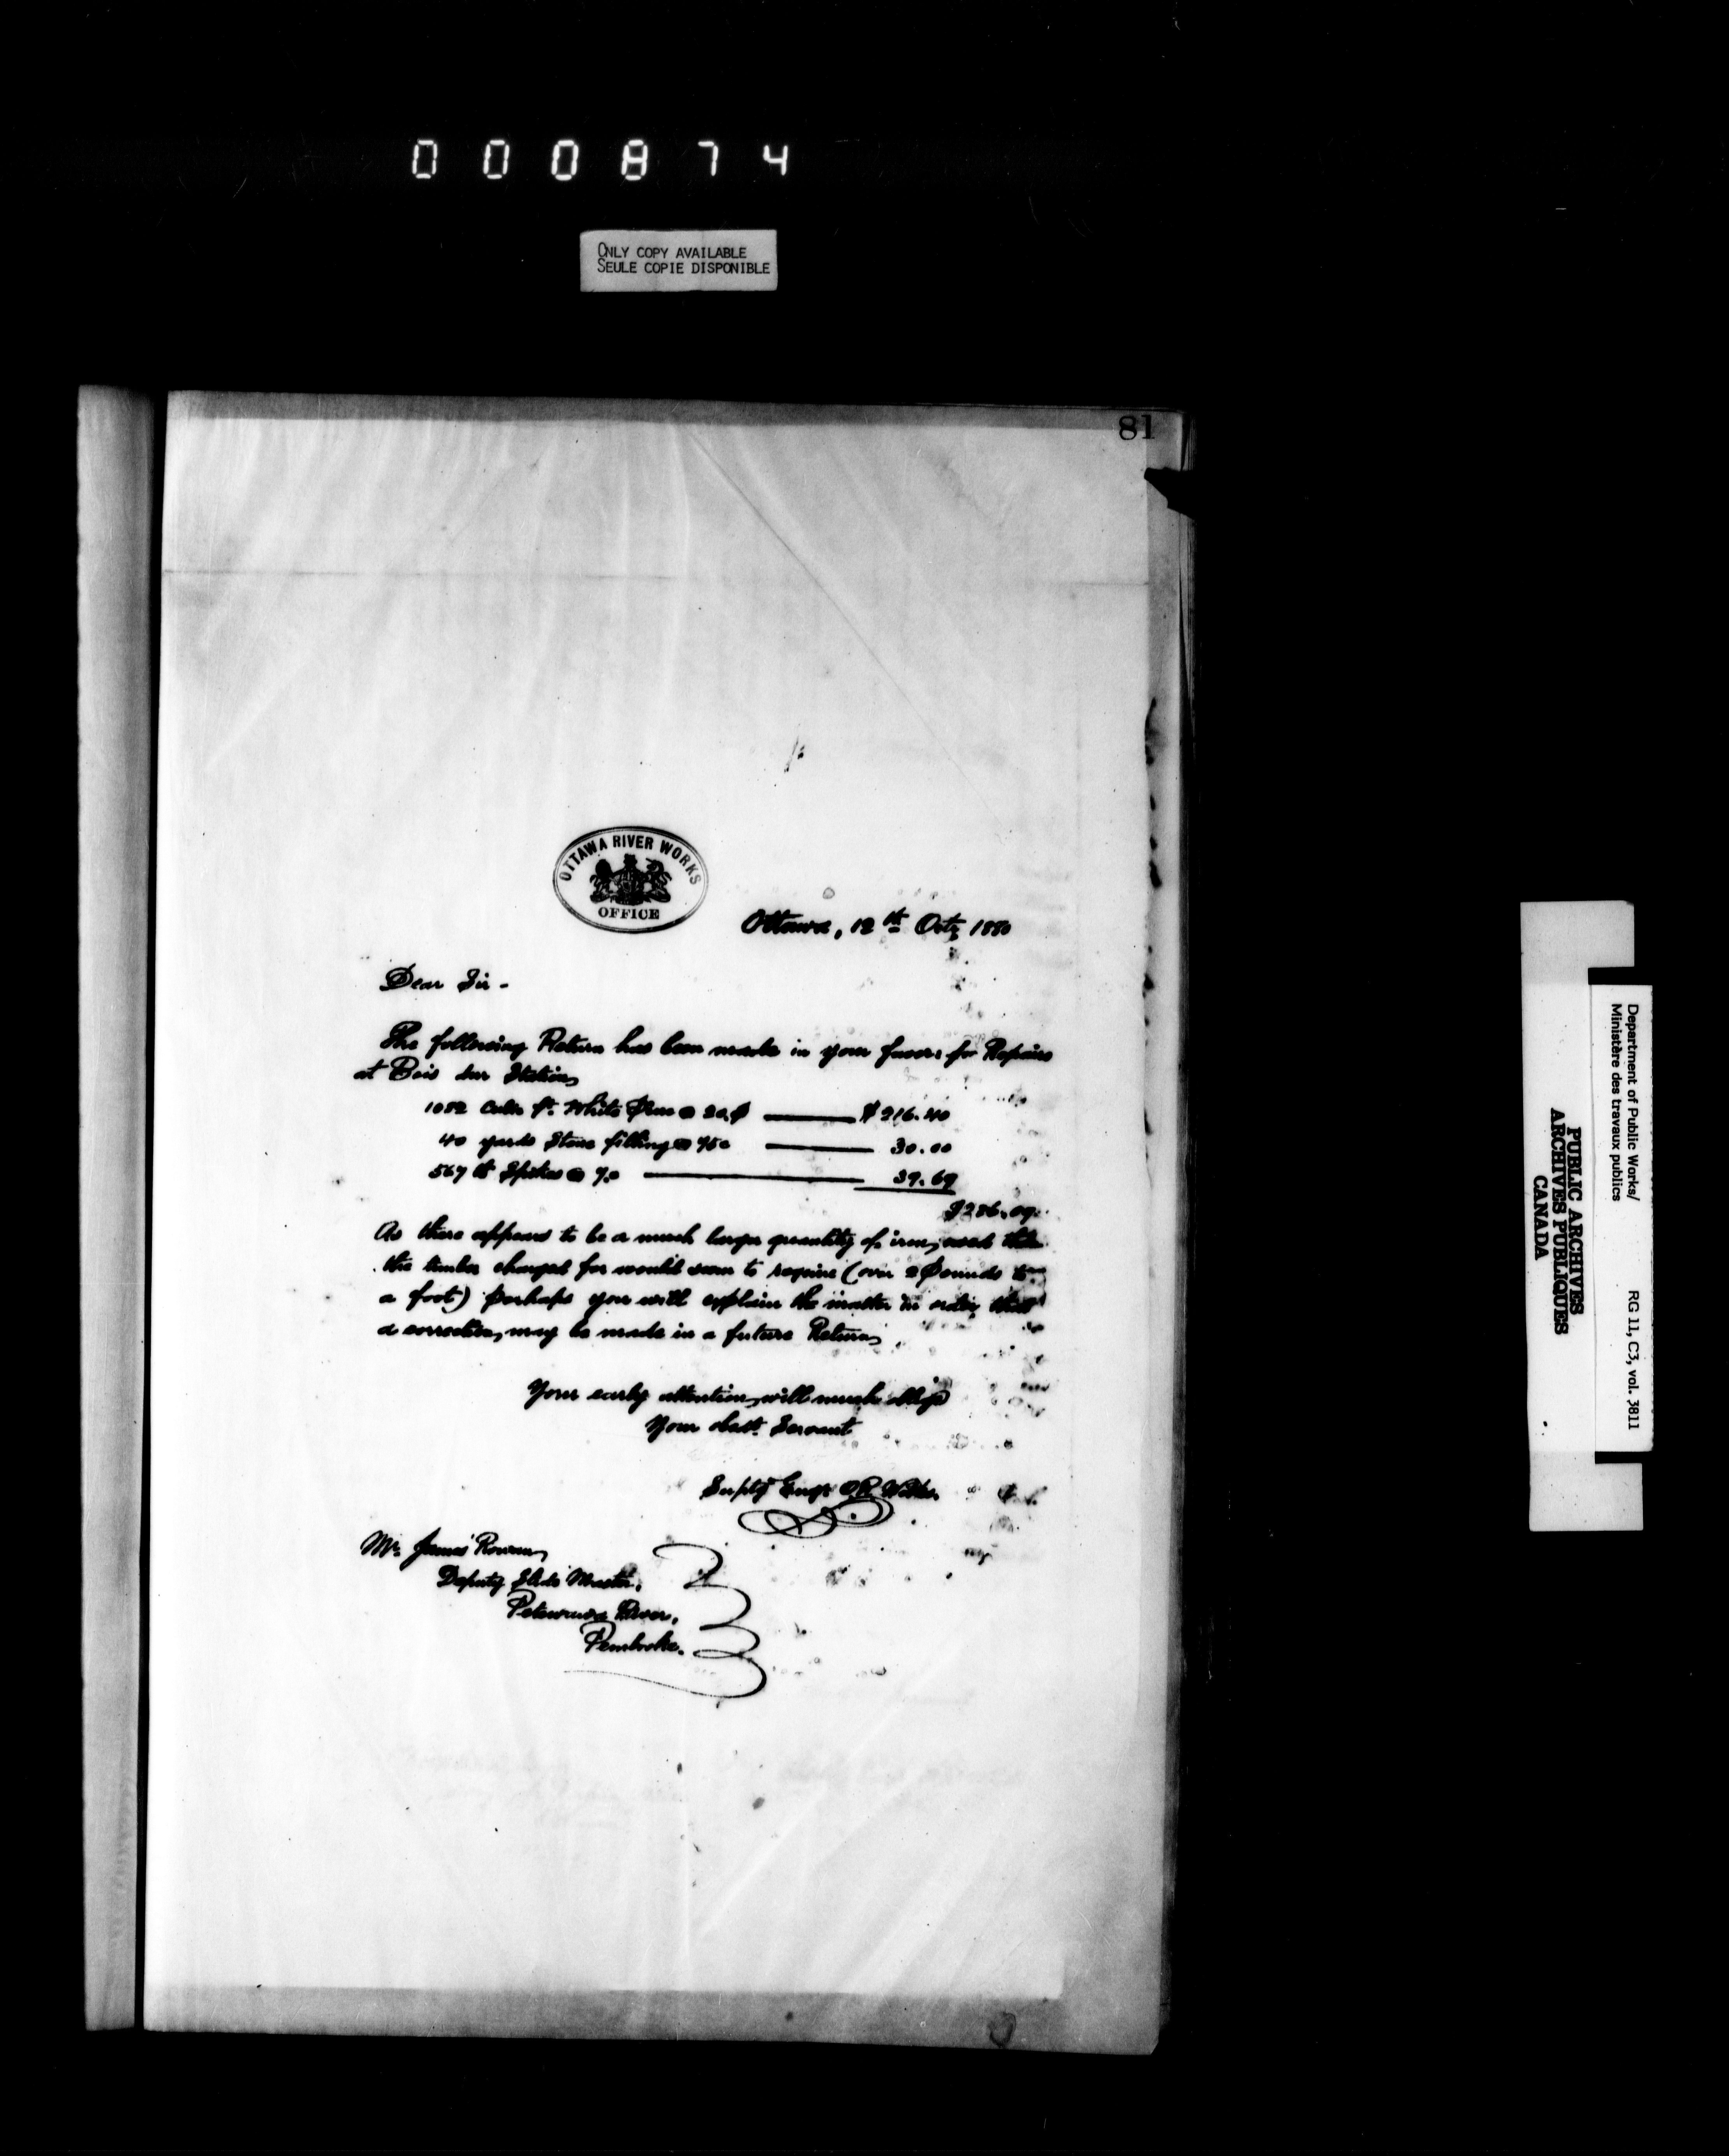 000874
ONLY COPY AVAILABLE
SEULE COPIE DISPONIBLE
81
OTTAWA RIVER WORKS
OFFICE
Ottawa, 12th Oct. 1880
Dear Sir -
The following Return has been made in your favor: for Repairs
at Bois dur Station
1082 Cubic ft. White Pine @ 20¢ $216.40
40 yards Stone filling @ 75c 30.00
567 lb Spikes @ 7.c 39.69
$286.09.
As there appears to be a much larger quantity of iron used than
the timber charged for would seem to require (over 2 Pounds to
a foot) perhaps you will explain the matter in order that
a correction may be made in a future Return
Your early attention will much oblige
Your obdt. Servant
Suptg Engr O.R. Works.
Mr. James Rowan
Deputy Slide Master,
Petewawa River,
Pembroke.
Department of Public Works/
Ministère des travaux publics
RG 11, C3, vol. 3811
PUBLIC ARCHIVES
ARCHIVES PUBLIQUES
CANADA